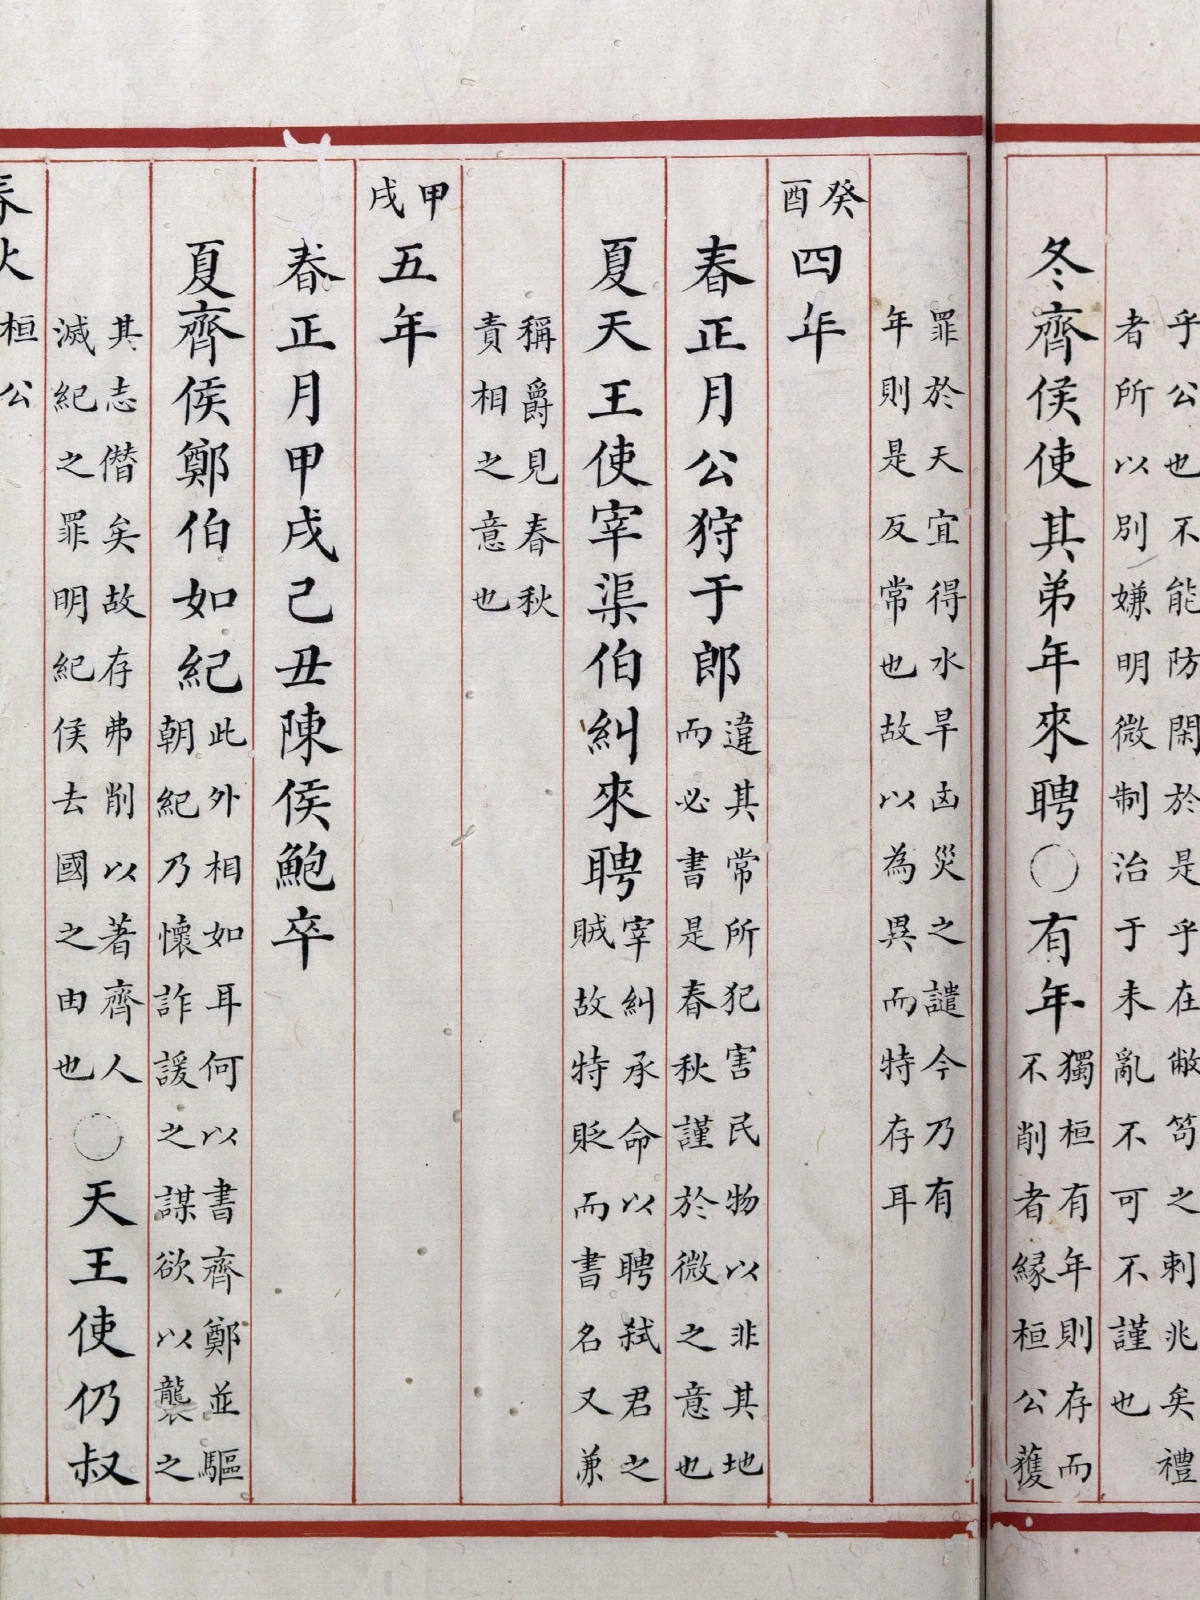 乎公也不能防閑於是乎在敝笱之刺兆矣禮
者所以別嫌明微制治于未亂不可不謹也
冬齊侯使其弟年來聘○有年獨桓有年則存而
不削者緣桓公獲
罪於天宜得水旱凶災之譴今乃有
年則是反常也故以為異而特存耳
癸酉四年
春正月公狩于郎違其常所犯害民物以非其地
而必書是春秋謹於微之意也
夏天王使宰渠伯糾來聘宰糾承命以聘弒君之
賊故特貶而書名又兼
稱爵見春秋
責相之意也
甲戌五年
春正月甲戌己丑陳侯鮑卒
夏齊侯鄭伯如紀此外相如耳何以書齊鄭並驅
朝紀乃懷詐諼之謀欲以襲之
其志僭矣故存弗削以著齊人
滅紀之罪明紀侯去國之由也○天王使仍叔
春秋桓公